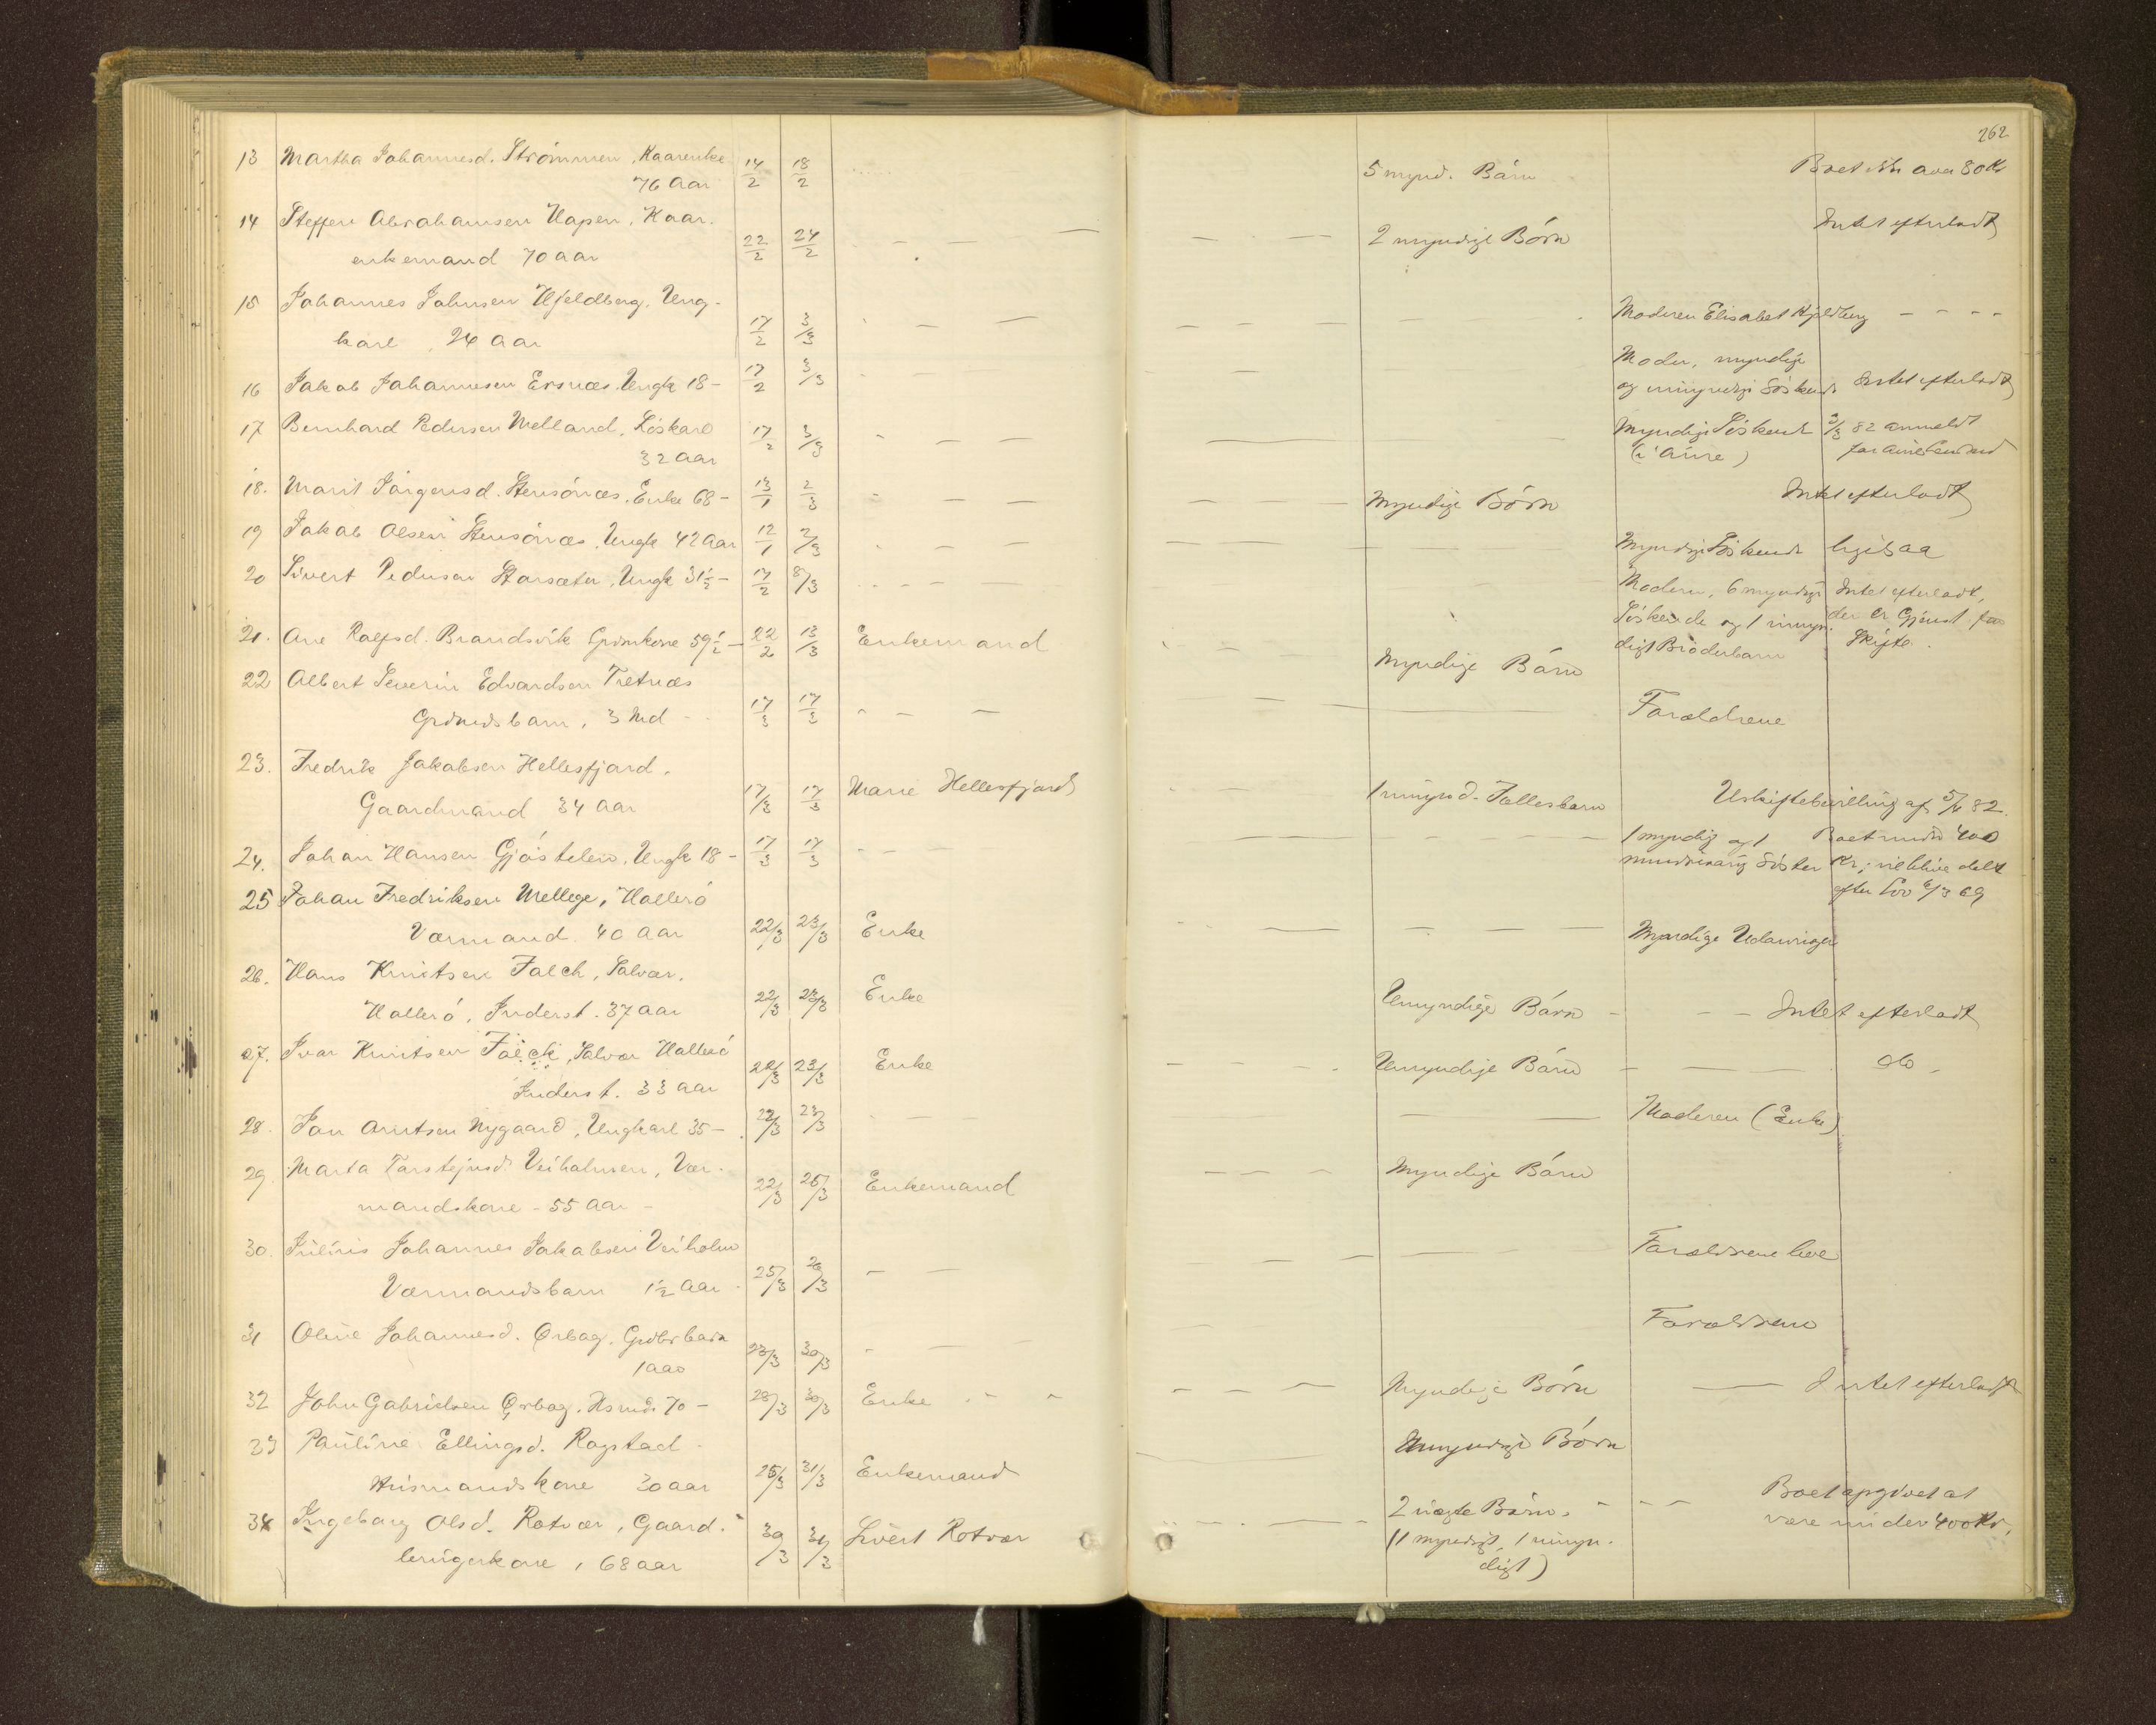 262
13 Martha Johannesd. Strømmen, Kaarenke 14/2 18/2 5 mynd. Børn Boet ikke over 80 Kr
76 Aar
14 Steffen Abrahamsen Hapen, Kaar- 22/2 24/2 2 myndige Børn Intet efterladt
enkemand 70 aar
15 Johannes Johnsen Hjeldberg, Ung- 17/2 3/3 Moderen Elisabet Hjeldberg
karl 24 aar
16 Jakob Johannesen Ersnæs, Ungk 18 - 17/2 3/3 Moder, myndige
og umyndige Søskende Intet efterladt
17 Bernhard Pedersen Melland, Løskarl 17/2 3/3 Myndige Søskende 3/3 82 anmeldt
32 aar (i Aure) for Aure Lensmd
18. Marit Jørgensd. Stensønæs, Enke 68 - 13/1 2/3 Myndige Børn Intet efterladt
19 Jakob Olsen Stensønæs, Ungk 42 aar 12/1 2/3 Myndige Søskende ligesaa
20 Sivert Pedersen Storsæter, Ungk 31½ - 17/2 8/3 Moderen, 6 myndige Intet efterladt,
Søskende og 1 umyn- der er Gjenst. for
digt Broderbarn Skifte.
21. Ane Roefsd. Brandsvik Grdmkone 59½ - 22/2 13/3 Enkemand Myndige Børn
22 Albert Severin Edvardsen Tretnæs
Grdmdsbarn, 3 Md - 17/3 17/3 Forældrene
23. Fredrik Jakobsen Hellesfjord,
Gaardmand 34 aar 17/3 17/3 Marie Hellesfjord 1 umynd. Fællesbarn Uskiftebevilling af 5/4 82.
24. Johan Hansen Gjøstelen, Ungk 18 - 17/3 17/3 1 myndig og 1 Boet under 400
mindreaarig Søster Kr; vil blive delt
efter Lov 6/3 69
25 Johan Fredriksen Mellege, Hallerö
Værmand 40 aar 22/3 23/3 Enke Myndige Udarvinger
26. Hans Knutsen Falch, Salvær,
Hallerö, Inderst. 37 aar 22/3 23/3 Enke Umyndige Børn Intet efterladt
27. Ivar Knutsen Falch, Salvær Hallerö
Inderst. 33 aar 22/3 23/3 Enke Umyndige Børn do -
28. Jon Arntsen Nygaard, Ungkarl 35 - 22/3 23/3 Moderen (Enke)
29 Marta Torstejnsd. Veiholmen, Vær-
mandskone - 55 aar - 22/3 25/3 Enkemand Myndige Børn
30. Julius Johannes Jakobsen Veiholm
Værmandsbarn 1½ aar 25/3 26/3 Forældrene leve
31 Oline Johannesd. Ørbog, Grdbrbarn
1 aar 23/3 30/3 Forældrene
32 John Gabrielsen Ørbog, Hsmd. 70 - 28/3 30/3 Enke Myndige Børn Intet efterladt
33 Pauline Ellingsd. Rogstad
Husmandskone 30 aar 25/3 31/3 Enkemand Umyndige Børn
34 Ingeborg Olsd. Rotvær, Gaard-
brugerkone, 68 aar 30/3 31/3 Sivert Rotvær 2 uægte Børn, Boet opgivet at
(1 myndigt, 1 umyn- være under 400 Kr,
digt)